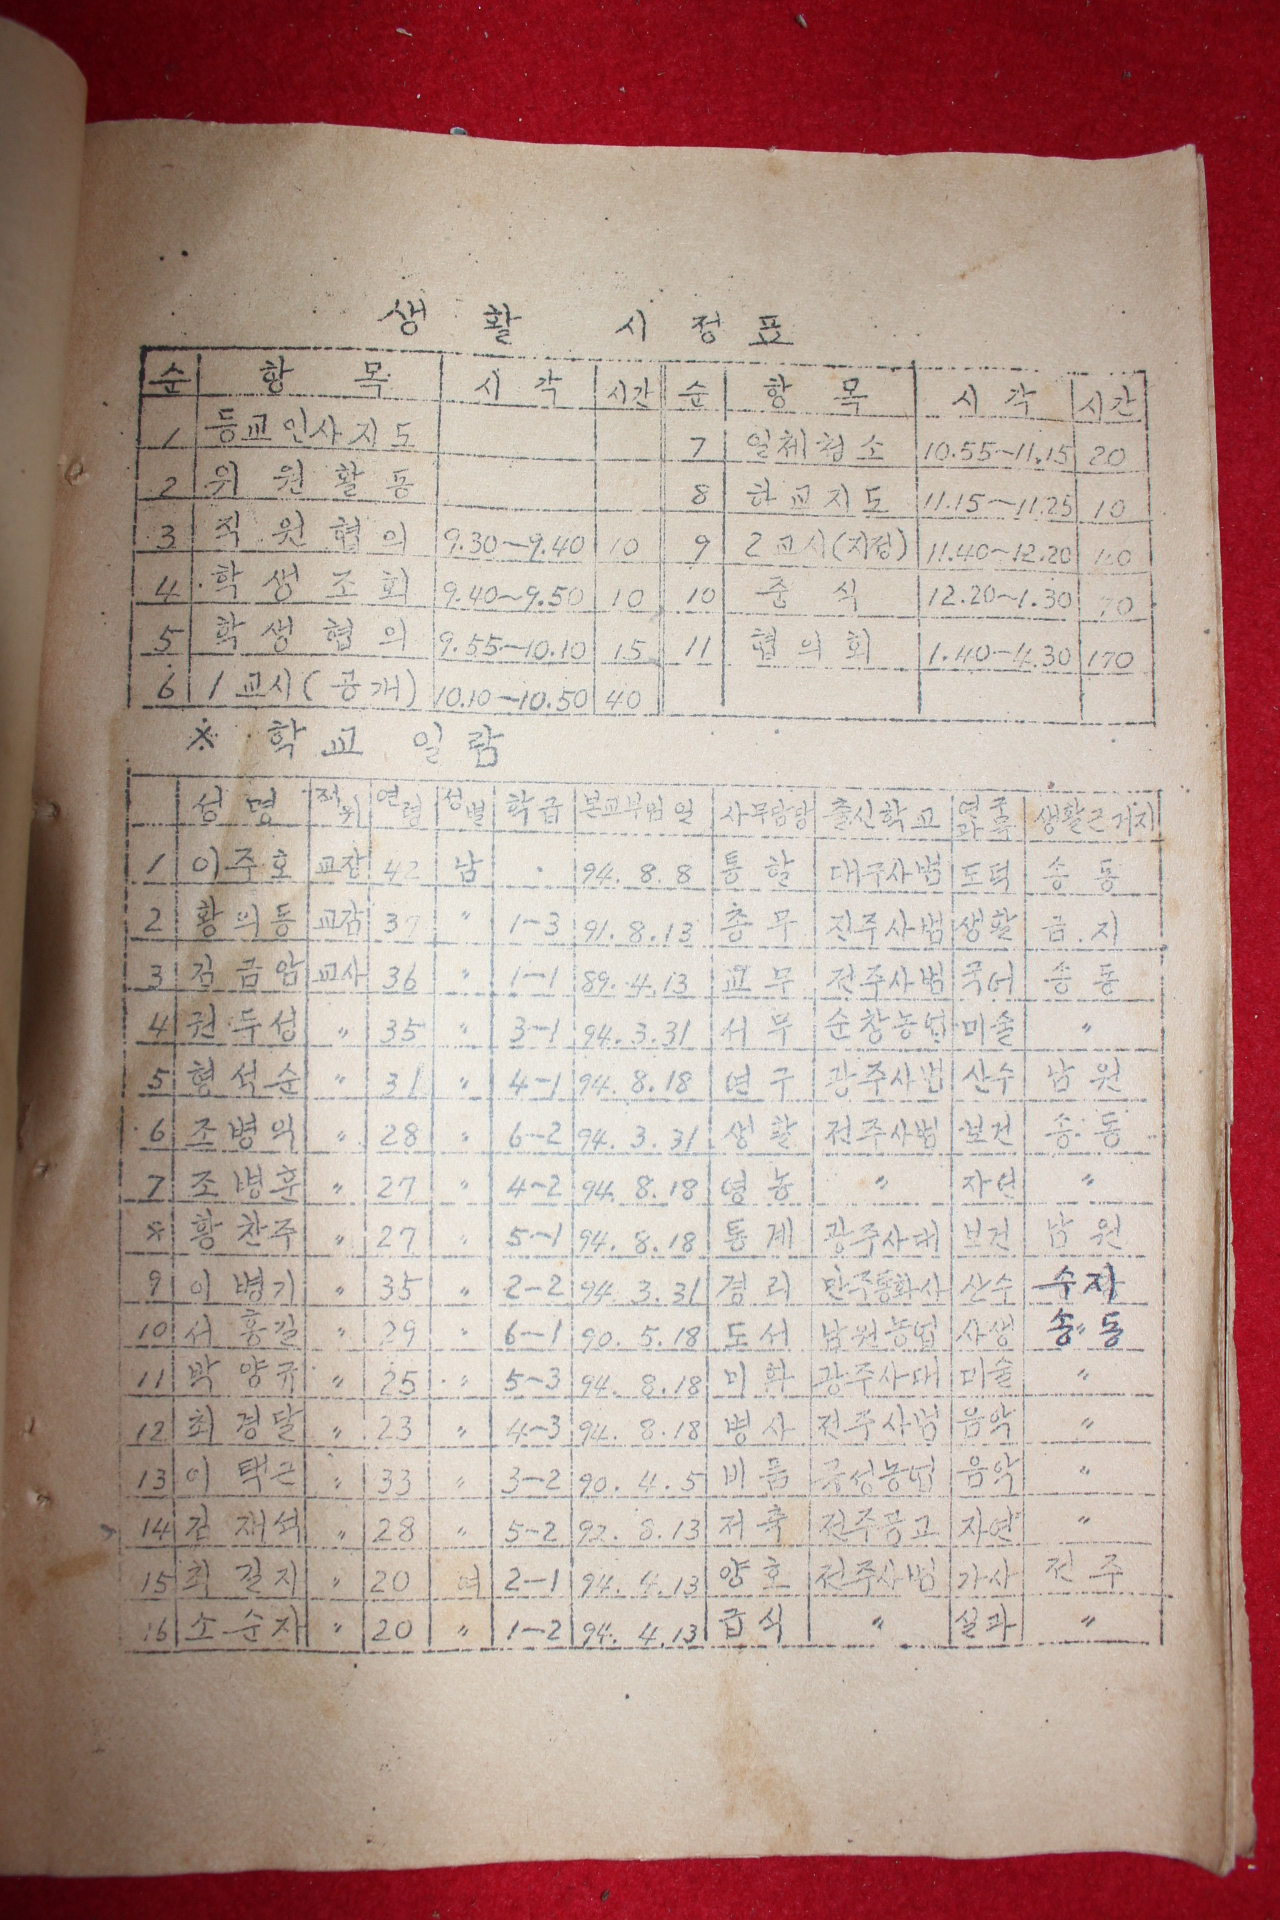 생활 시정표
순 항목 시각 시간 순 항목 시각 시간
1 등교인사지도 7 일체청소 10.55~11.15 20
2 위원활동 8 하교지도 11.15~11.25 10
3 직원협의 9.30~9.40 10 9 2교시(지정) 11.40~12.20
4 학생조회 9.40~9.50 10 10 중식 12.20~1.30 70
5 학생협의 9.55~10.10 15 11 협의회 1.40~4.30 170
6 1교시(공개) 10.10~10.50 40
※ 학교일람
성명 직위 연령 성별 학급 본교부임일 사무담당 출신학교 생활근거지
1 이주호 교장 42 남 94.8.8 통할 대구사범 도덕 송동
2 황의동 교감 〃 1-3 91.8.13 총무 전주사범 생활 금지
3 김금암 교사 36 〃 1-1 89.4.13 교무 전주사범 국어 송동
4 권두성 〃 35 〃 3-1 94.3.31 서무 순창농업 미술 〃
5 형석순 〃 31 〃 4-1 94.8.18 연구 광주사범 산수 남원
6 조병익 〃 28 〃 6-2 94.3.31 생활 전주사범 보건 송동
7 조병훈 〃 27 〃 4-2 94.8.18 영농 〃 자연 〃
※ 황찬주 〃 27 〃 5-1 94.8.18 통계 광주사대 보건 남원
9 이병기 〃 35 〃 2-2 94.3.31 경리 산수 수지
10 서홍길 〃 29 〃 6-1 90.5.18 도서 남원농업 사생 송동
11 박양규 〃 25 〃 5-3 94.8.18 미화 광주사대 미술 〃
12 최경달 〃 23 〃 4-3 94.8.18 병사 전주사범 음악 〃
13 이택근 〃 33 〃 3-2 90.4.5 비품 음악 〃
14 김재석 〃 28 〃 5-2 92.8.13 저축 전주공고 자연 〃
15 최길자 〃 20 여 2-1 94.4.13 양호 전주사범 가사 전주
16 소순자 〃 20 〃 1-2 94.4.13 급식 〃 실과 〃